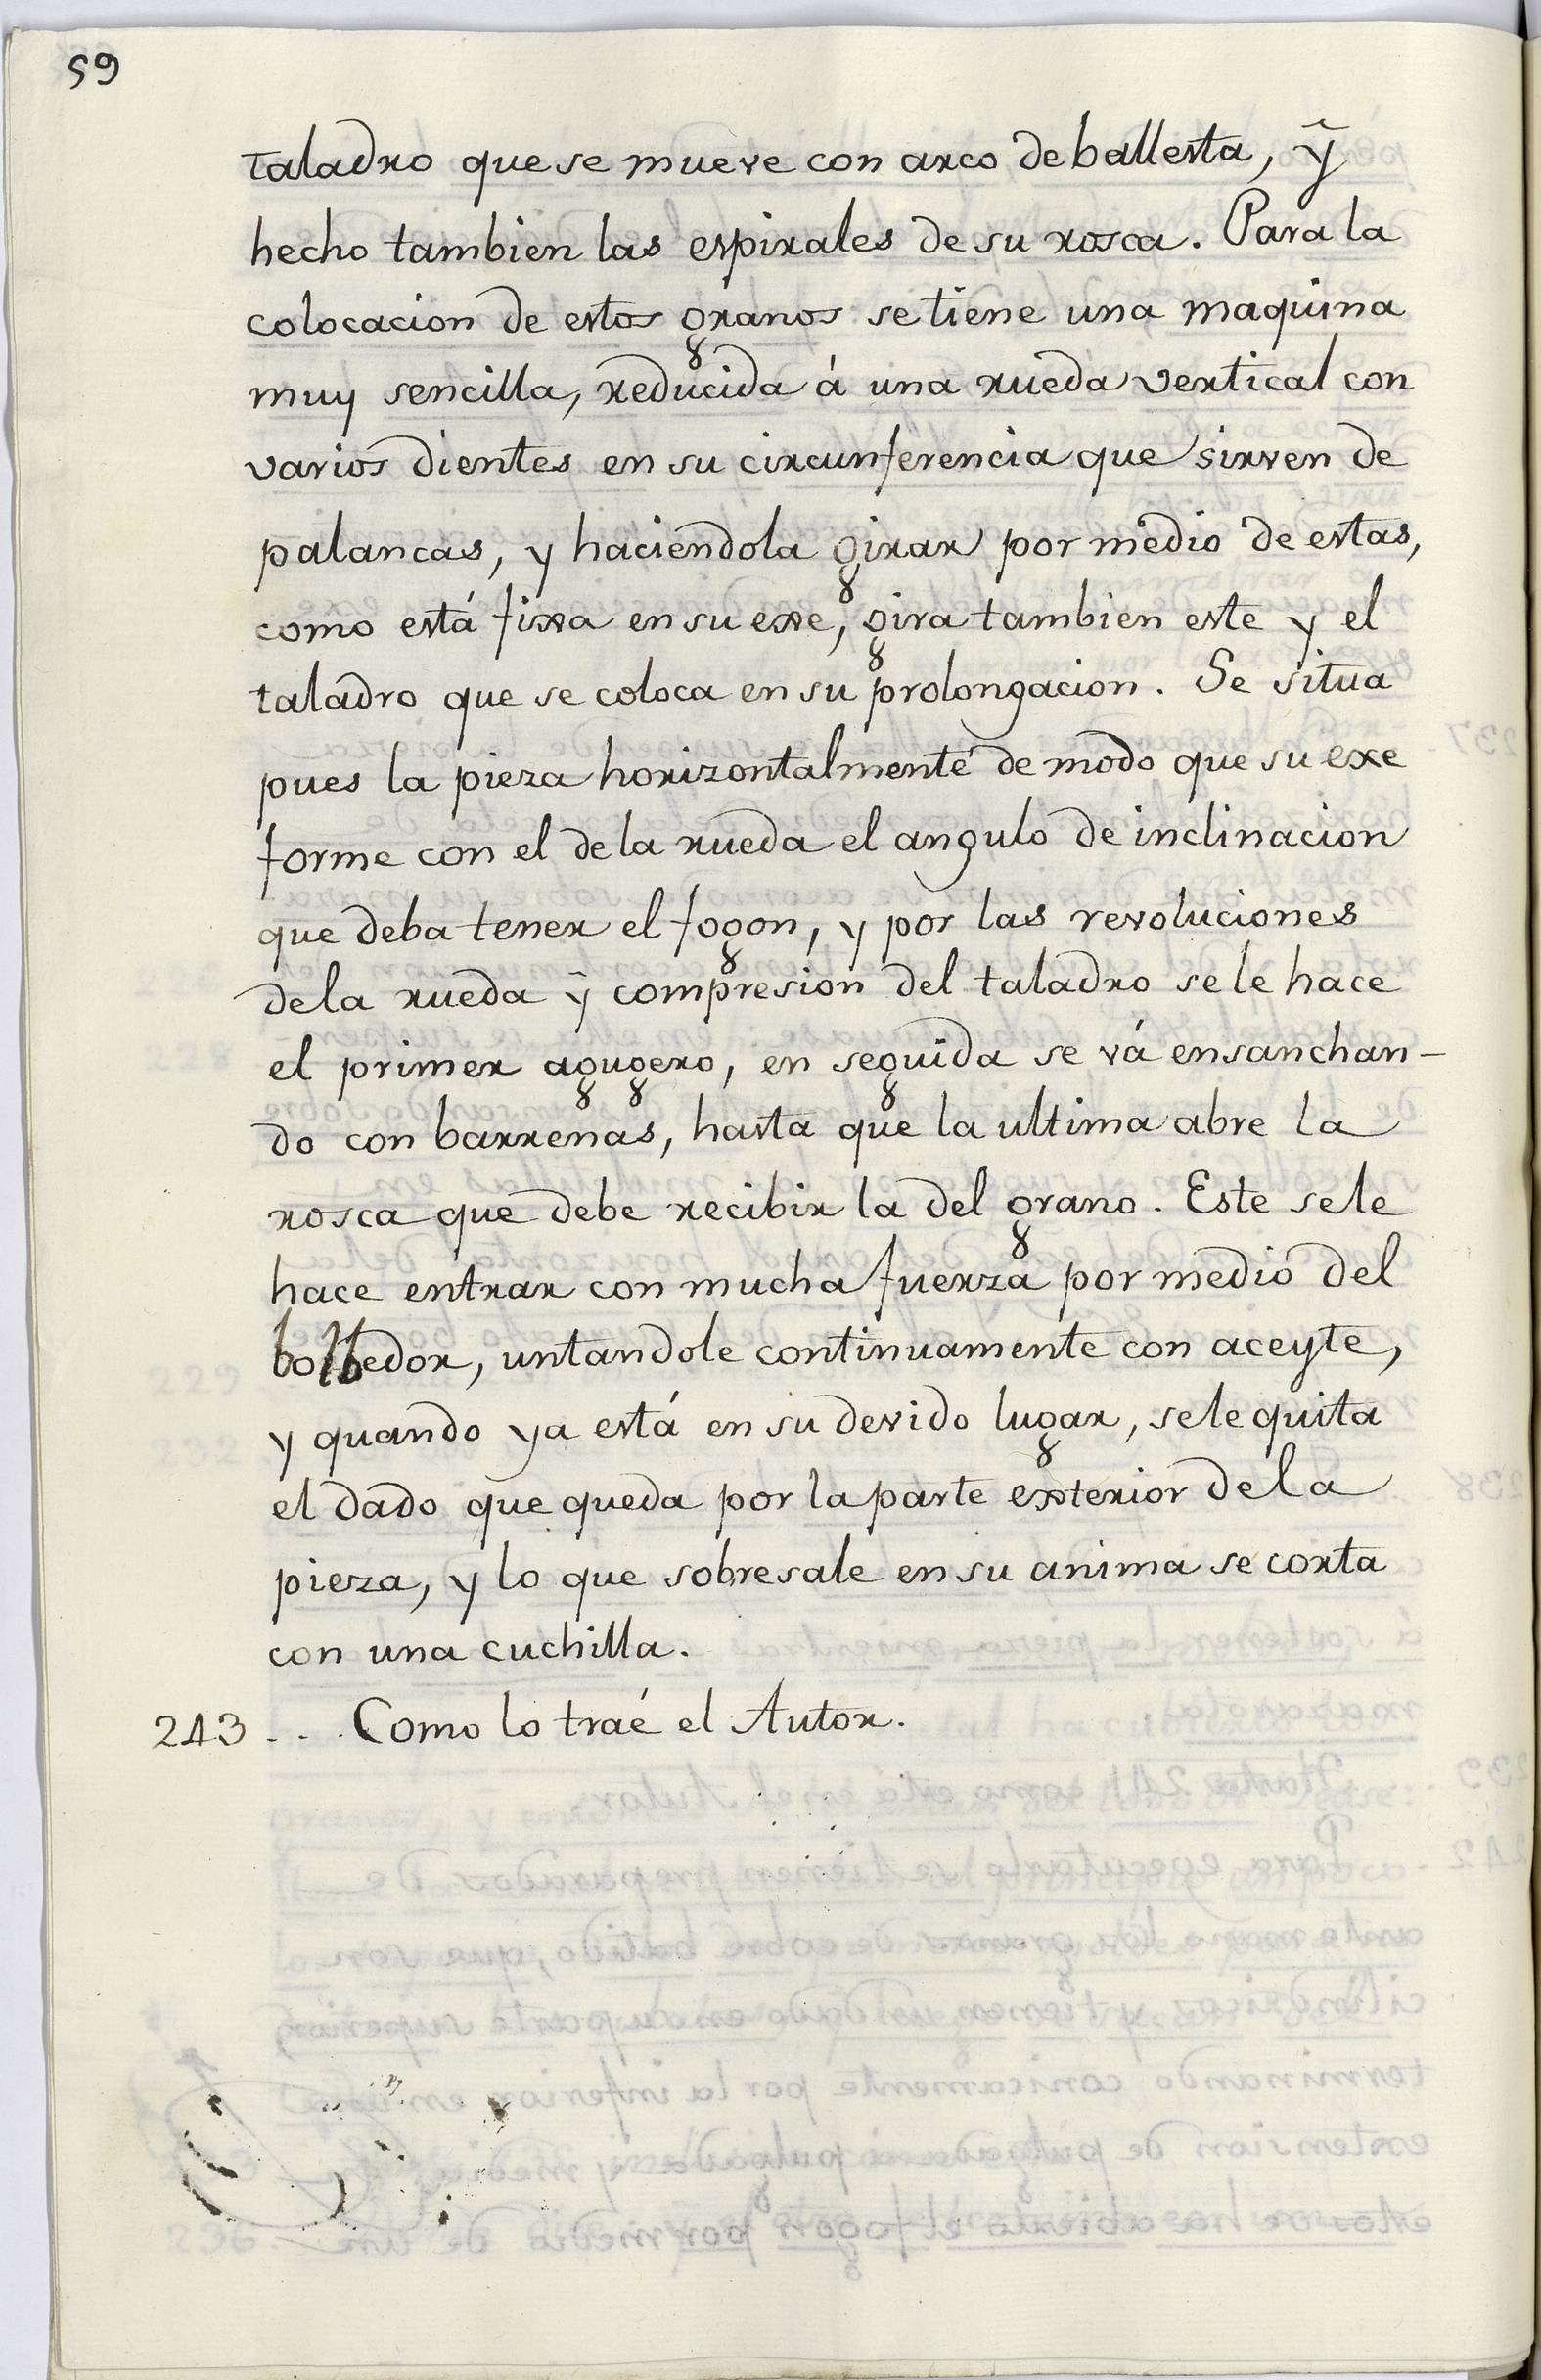 59
taladro que se mueve con arco de ballesta, ỹ
hecho tambien las espirales de su rosca. Para la
colocacion de estos granos se tiene una maquina
muy sencilla, reducida á una rueda vertical con
varios dientes en su circunferencia que sirven de
palancas, y haciendola girar por medio de estas,
como está fixa en su exe, gira tambien este y el
taladro que se coloca en su prolongacion. Se situa
pues la pieza horizontalmente de modo que su exe
forme con el de la rueda el angulo de inclinacion
que deba tener el fogon, y por las revoluciones
de la rueda ỹ compresion del taladro se le hace
el primer agugero, en seguida se vá ensanchan-
do con barrenas, hasta que la ultima abre la
rosca que debe recibir la del grano. Este se le
hace entrar con mucha fuerza por medio del
bolbedor, untandole continuamente con aceyte,
y quando ya está en su devido lugar, se le quita
el dado que queda por la parte exterior de la
pieza, y lo que sobresale en su anima se corta
con una cuchilla.
243 ... Como lo traé el Autor.